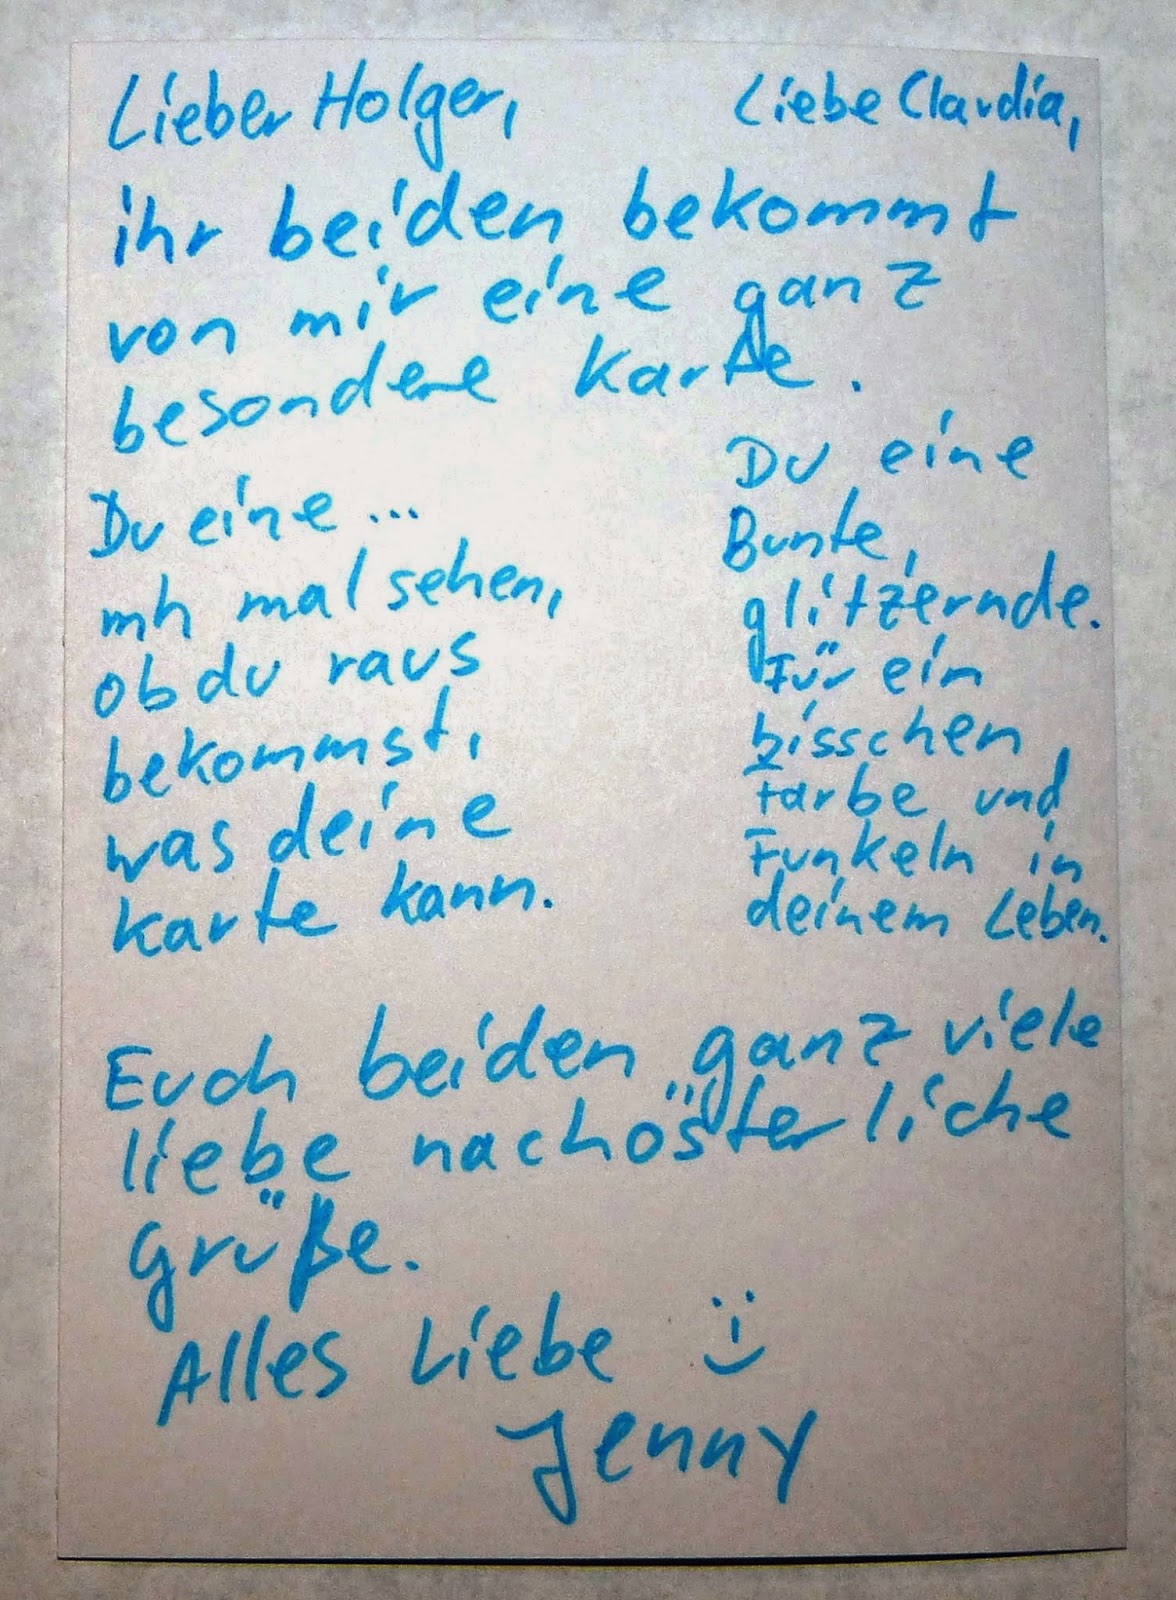 Lieber Holger, Liebe Claudia,
ihr beiden bekommt
von mir eine ganz
besondere Karte.
Du eine...
mh mal sehen,
ob du raus
bekommst,
was deine
Karte kann.
Du eine
Bunte,
glitzernde.
Für ein
bisschen
Farbe und
Funkeln in
deinem Leben.
Euch beiden ganz viele
liebe nachösterliche
Grüße.
Alles Liebe :)
Jenny